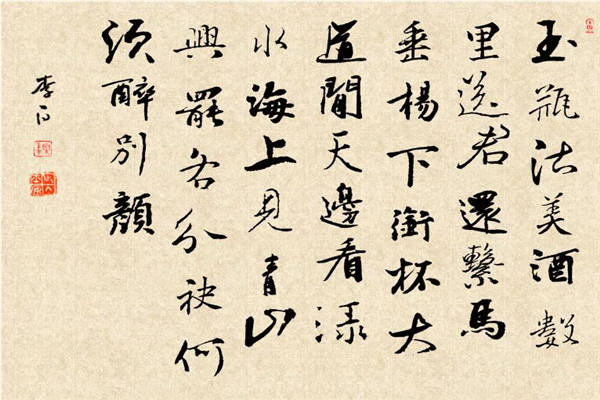 玉瓶沽美酒數
里送君還繫馬
垂楊下銜杯大
道間天邊看渌
水海上見青山
興罷各分袂何
須醉別顏
李白